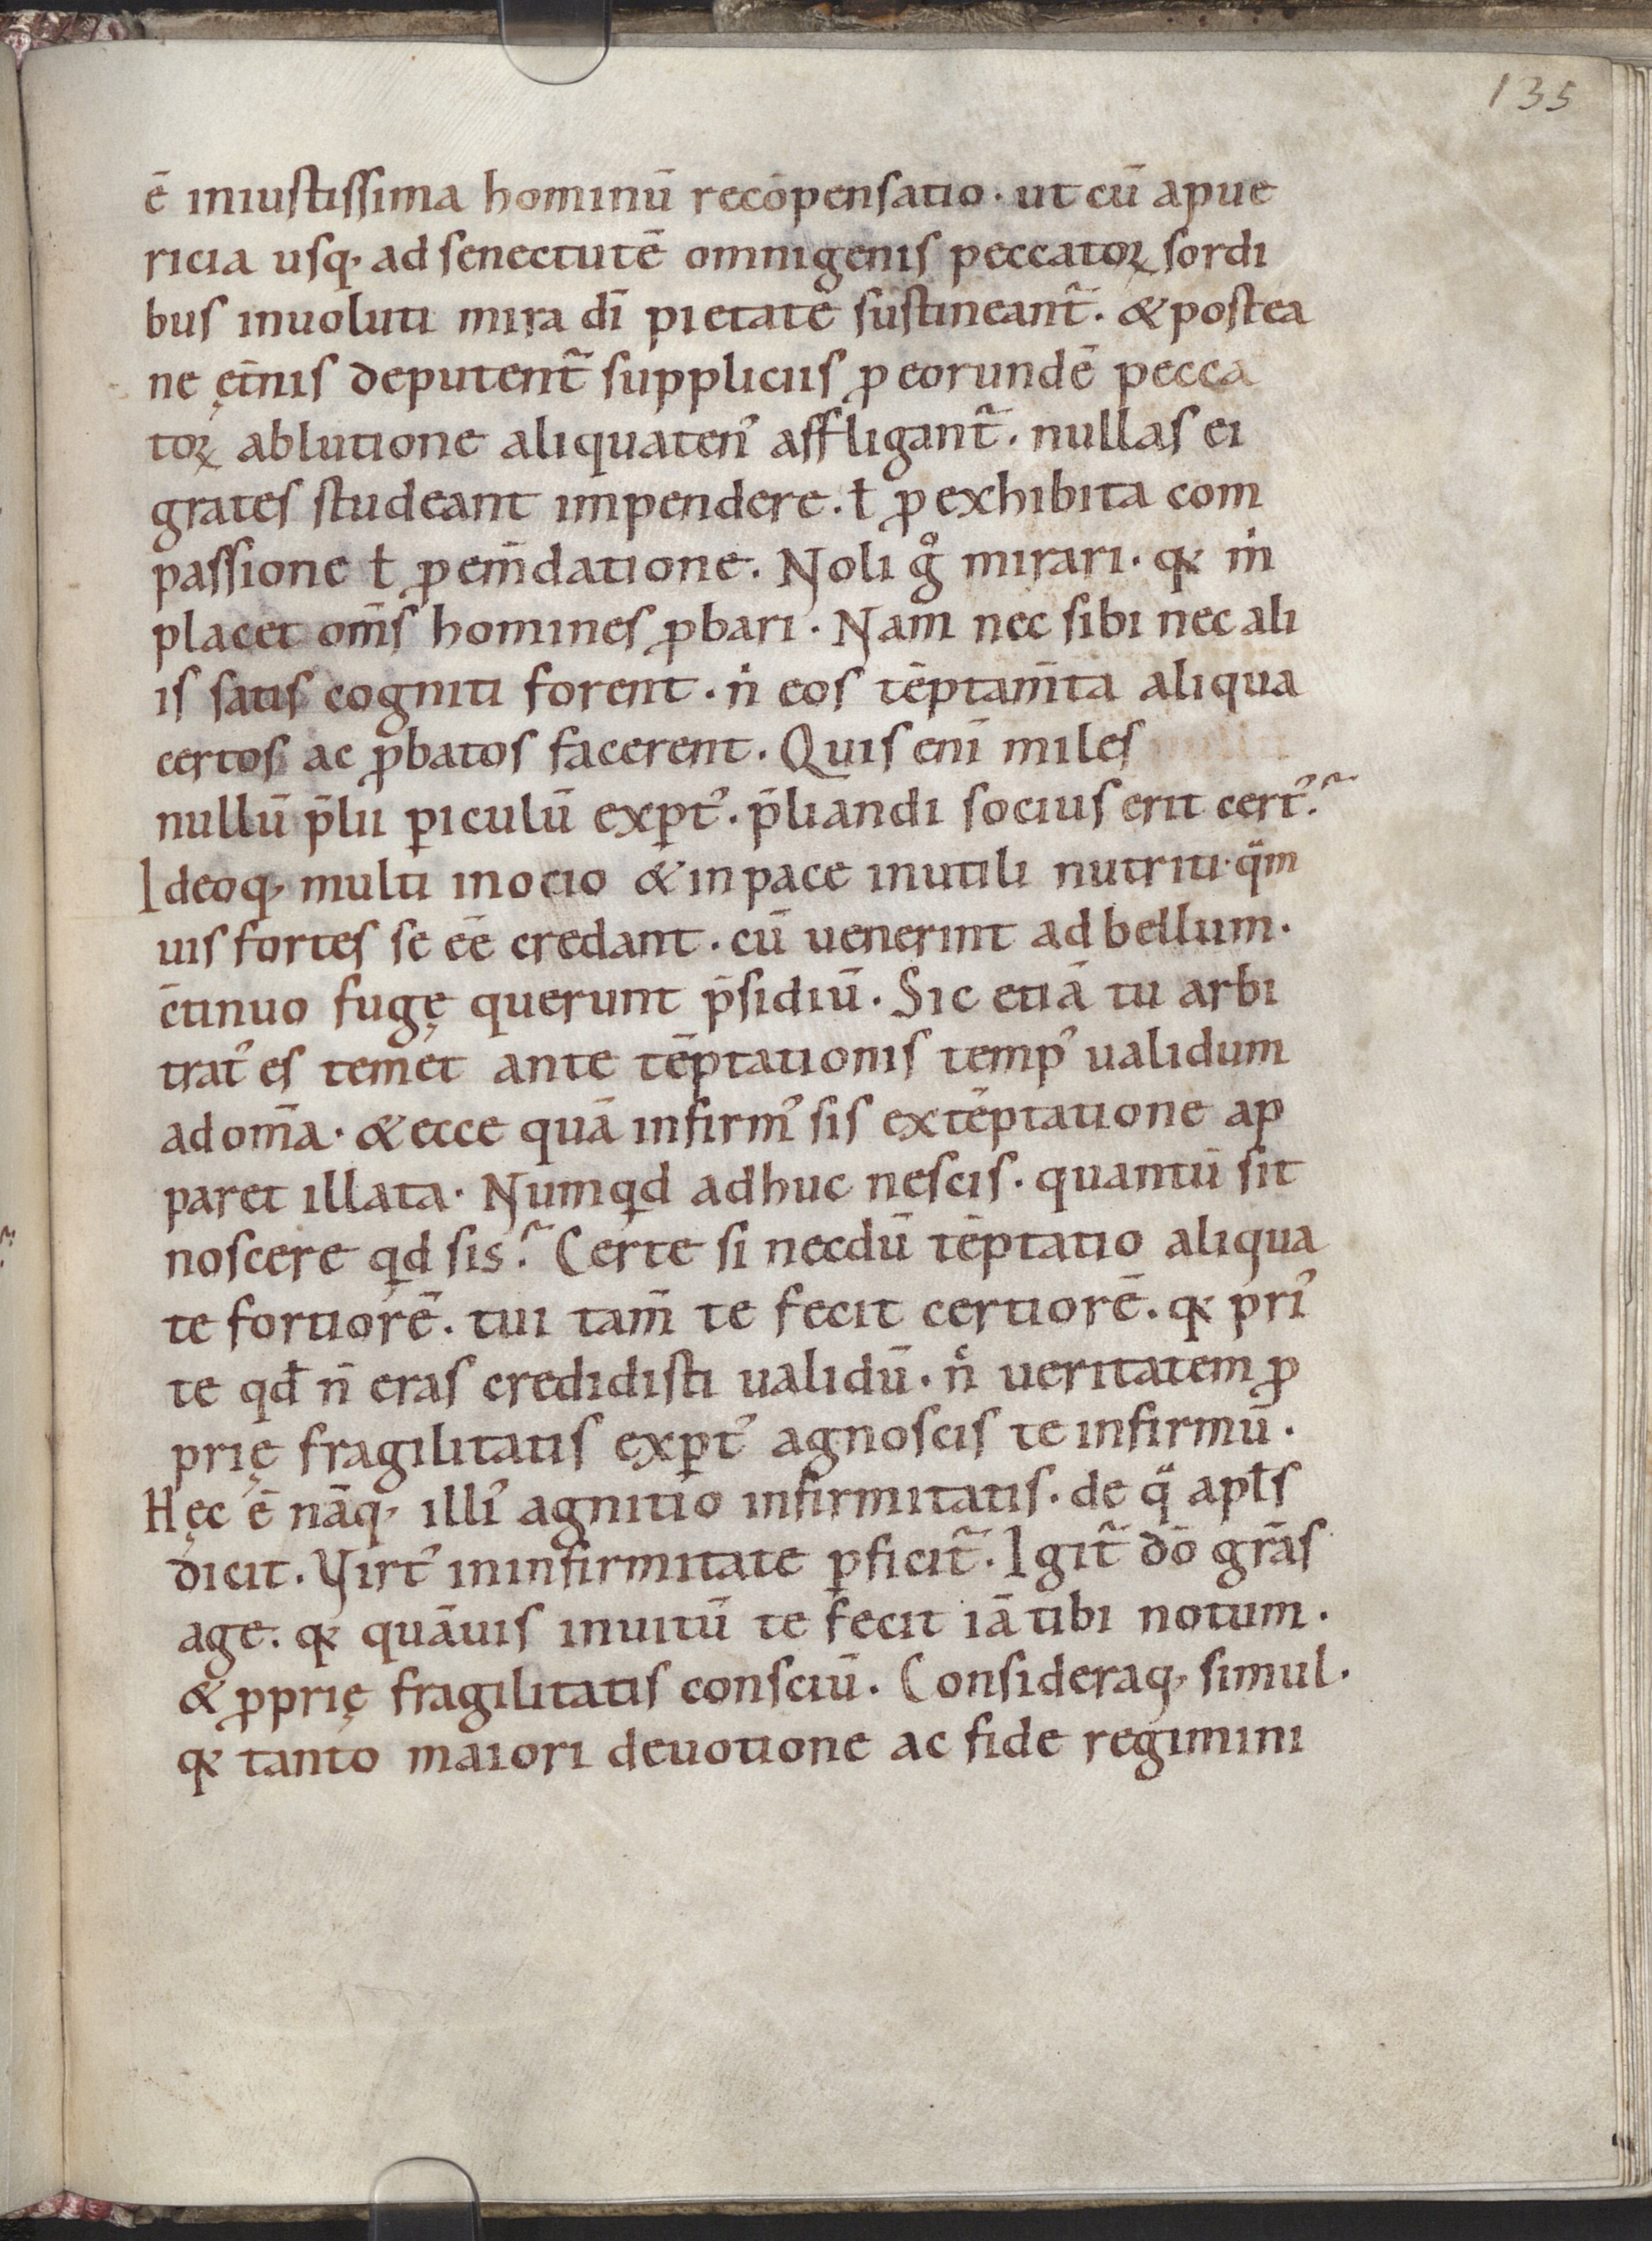 135
ē iniustissima hominū recōpensatio · ut cū apue
ricia usq; ad senectutē omnigenis peccatoꝝ sordi
bus inuoluti mira dī pietate sustineant᷑ · & postea
ne ęt̄nis deputent᷑ suppliciis ꝓ eorundē pecca
toꝝ ablutione aliquaten᾽ affligant᷑ · nullas ei
grates studeant impendere · ł ꝓ exhibita com
passione ł ꝓ em̄datione . Noli gͦ mirari · qꝛ in
placet om̄s homines ꝓbari · Nam nec sibi nec ali
is satis cogniti forent · n̍ eos tēptam̄ta aliqua
certos ac ꝓbatos facerent . Quis eni̅ miles
nullū p̄lii ꝑiculū exꝑt᾽ · p̄liandi socius erit cert᾽ ?
Ideoq; multi in ocio & in pace inutili nutriti · qͣm
uis fortes se eē credant · cū uenerint ad bellum ·
c̄tinuo fugę querunt p̄sidiū . Sic etiā tu arbi
trat᾽ es temet ante tēptationis temp᾽ ualidum
ad om̄a · & ecce quā infirm᾽ sis ex tēptatione ap
paret illata · Numqͥd adhuc nescis · quantū sit
noscere qͥd sis ? Certe si necdū tēptatio aliqua
te fortiorē . tui tam̄ te fecit certiorē . qꝛ pri᾽
te qđ n̄ eras credidisti ualidū · nͨ ueritatem ꝓ
prię fragilitatis exꝑt᾽ agnoscis te infirmū .
Hęc ē nāq; illi᾽ agnitio infirmitatis · de qͣ apłs
dicit . Virt᾽ in infirmitate ꝑficit᷑ . Igit᷑ dō gr̄as
age . qꝛ quāuis inuitū te fecit iā tibi notum .
& ꝓprię fragilitatis consciū . Consideraq; simul .
qꝛ tanto maiori deuotione ac fide regimini